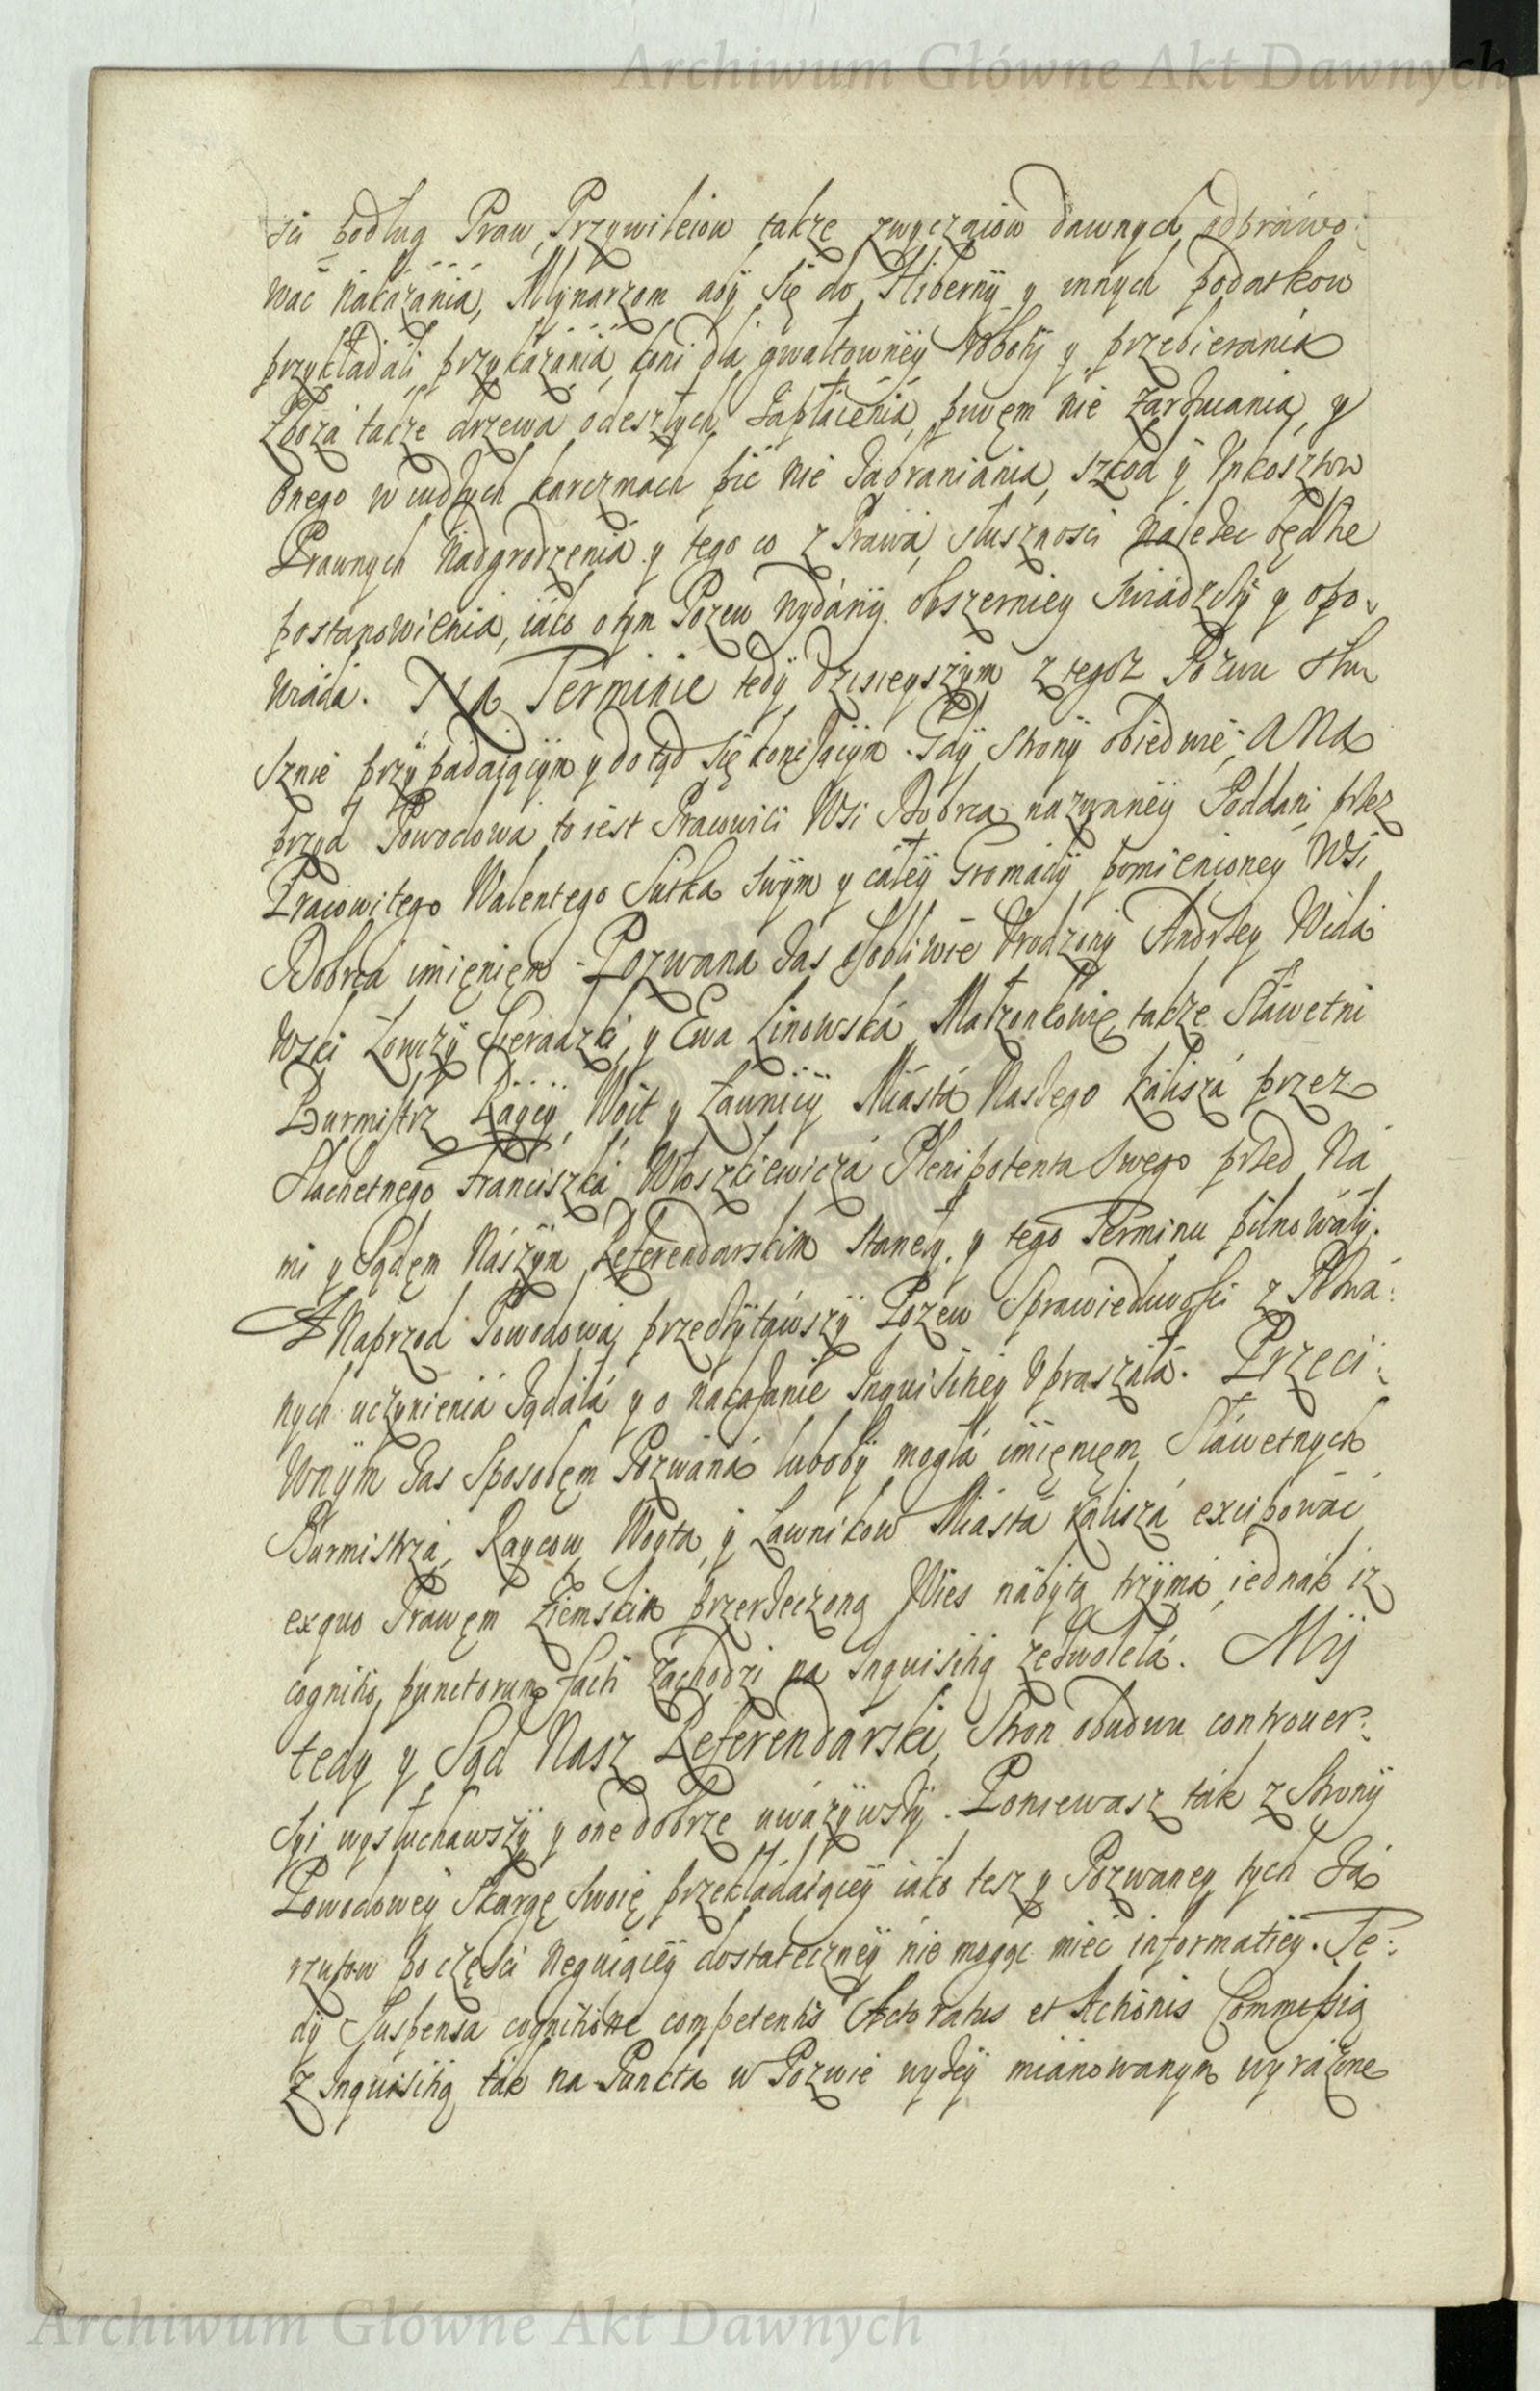 Archiwum Główne Akt Dawnych
sci podług Praw, Przywileiow także zwyczaiow dawnych odprawo:
wać nakazania, Młynarzom aby się do Hiberny y innych podatkow
przykładali przykazania, koni dla gwałtowney roboty y przebierania
Zboza także drzewa odeszłych zapłacenia, piwem nie zarzucania, y
onego w cudzych karczmach pić nie zabraniania, szkod y Vnkosztow
Prawnych nadgrodzenia y tego co z Prawa, słusznosci nalezec będzie
postanowienia, iako otym Pozew wydany obszerniey swiadczy y opo-
wiada. Na Terminie tedy dzisieyszym z tegoz Pozwu słu-
sznie przypadaiącym y dotąd się kończącym. Gdy strony obiedwie; a na
przod Powodowa to iest Pracowici Wsi Dobrca nazwaney Poddani przez
Pracowitego Walentego Sutka swym y całey Gromady pomienioney Wsi
Dobrca imieniem - Pozwana zas osobliwie Vrodzony Andrzey Wida
wski Łowczy Sieradzki, y Ewa Linowska Małzonkowie, także Sławetni
Burmistrz Raycy, Woit y Ławnicy Miasta Naszego Kalisza przez
Szlachetnego Franciszka Włoszkiewicza Plenipotenta swego przed Na
mi y Sądem Naszym Referendarskim staneły, y tego Terminu pilnowały.
A Naprzod Powodowa przeczytawszy Pozew Sprawiedliwosci z Pozwa:
nych uczynienia żądała y o nakazanie Inquisitiey Vpraszała. Przeci:
wnym zas sposobem Pozwana luboby mogła imieniem Sławetnych
Burmistrza, Raycow, Woyta, y Ławnikow Miasta Kalisza excipowac
exquo Prawem Ziemskim przerzeczoną Wies nabytą trzyma, iednak iz
cognitio punctorum facti zachodzi na Inquisitią zezwoleła. My
tedy y Sąd Nasz Referendarski, Stron obudwu controuer:
syi wysłuchawszy y one dobrze uwazywszy. Poniewasz tak z Strony
Powodowey Skargę swoię przekładaiącey iako tesz y Pozwaney tych Za
rzutow po częsci neguiącey dostateczney nie mogąc miec informatiey. Te:
dy Suspensa cognitione competentis Actoratus et Actionis Commissią
z Inquisitią tak na Puncta w Pozwie wyzey mianowanym wyrazone
Archiwum Główne Akt Dawnych